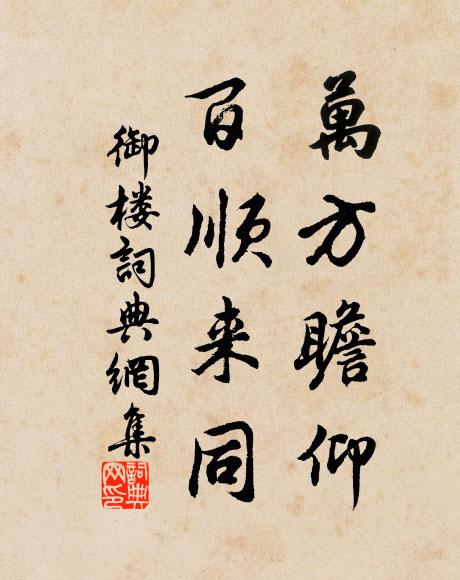 萬方瞻仰
百順来同
御楼詞典網集
詞典網印